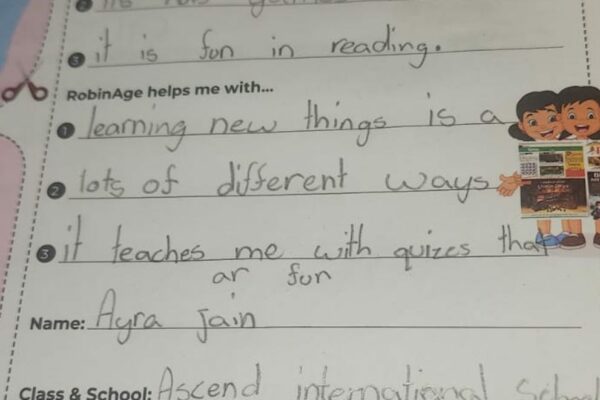 ② its has games
③ it is fun in reading.
RobinAge helps me with...
① learning new things is a
② lots of different ways
③ it teaches me with quizes that
ar fun
Name: Ayra jain
Class & School: Ascend international School